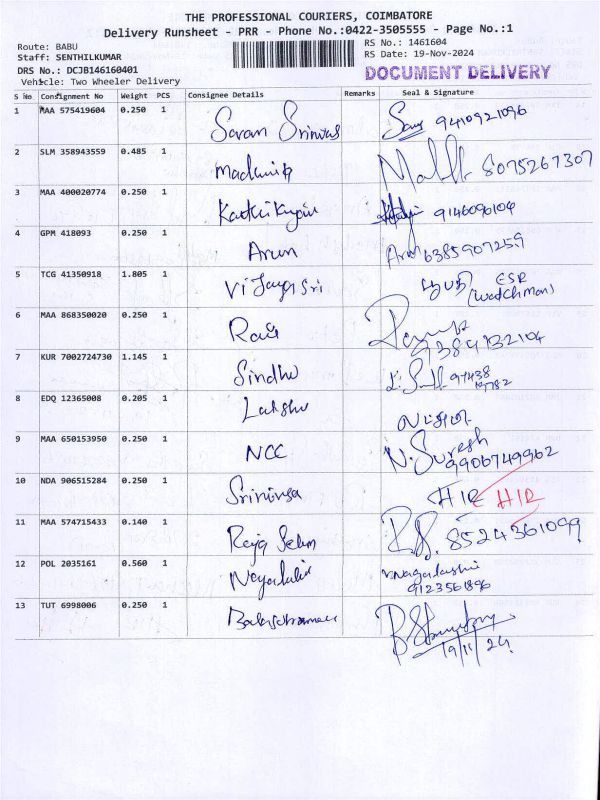 THE PROFESSIONAL COURIERS, COIMBATORE
Delivery Runsheet - PRR - Phone No.:0422-3505555 - Page No.:1
Route: BABU
RS No.: 1461604
Staff: SENTHILKUMAR
RS Date: 19-Nov-2024
DRS No.: DCJB146160401
DOCUMENT DELIVERY
Vehicle: Two Wheeler Delivery
S No Consignment No Weight PCS Consignee Details Remarks Seal & Signature
1 MAA 575419604 0.250 1 Saran Srinivas 9410921096
2 SLM 358943559 0.485 1 8075267307
3 MAA 400020774 0.250 1 9146096104
4 GPM 418093 0.250 1 Arun Arn 6385907259
5 TCG 41350918 1.805 1 Vijaya Sri ESR
(watchman)
6 MAA 868350020 0.250 1
9384932104
7 KUR 7002724730 1.145 1 Sindhu 97438
8 EDQ 12365008 0.205 1 Lakshu
9 MAA 650153950 0.250 1 NCC N. Suresh
9906749962
10 NDA 906515284 0.250 1 Srinivsa H1R H1R
11 MAA 574715433 0.140 1 Raja Selm 8524361099
12 POL 2035161 0.560 1 V. Nagalakshi
9123561896
13 TUT 6998006 0.250 1
19/11/24